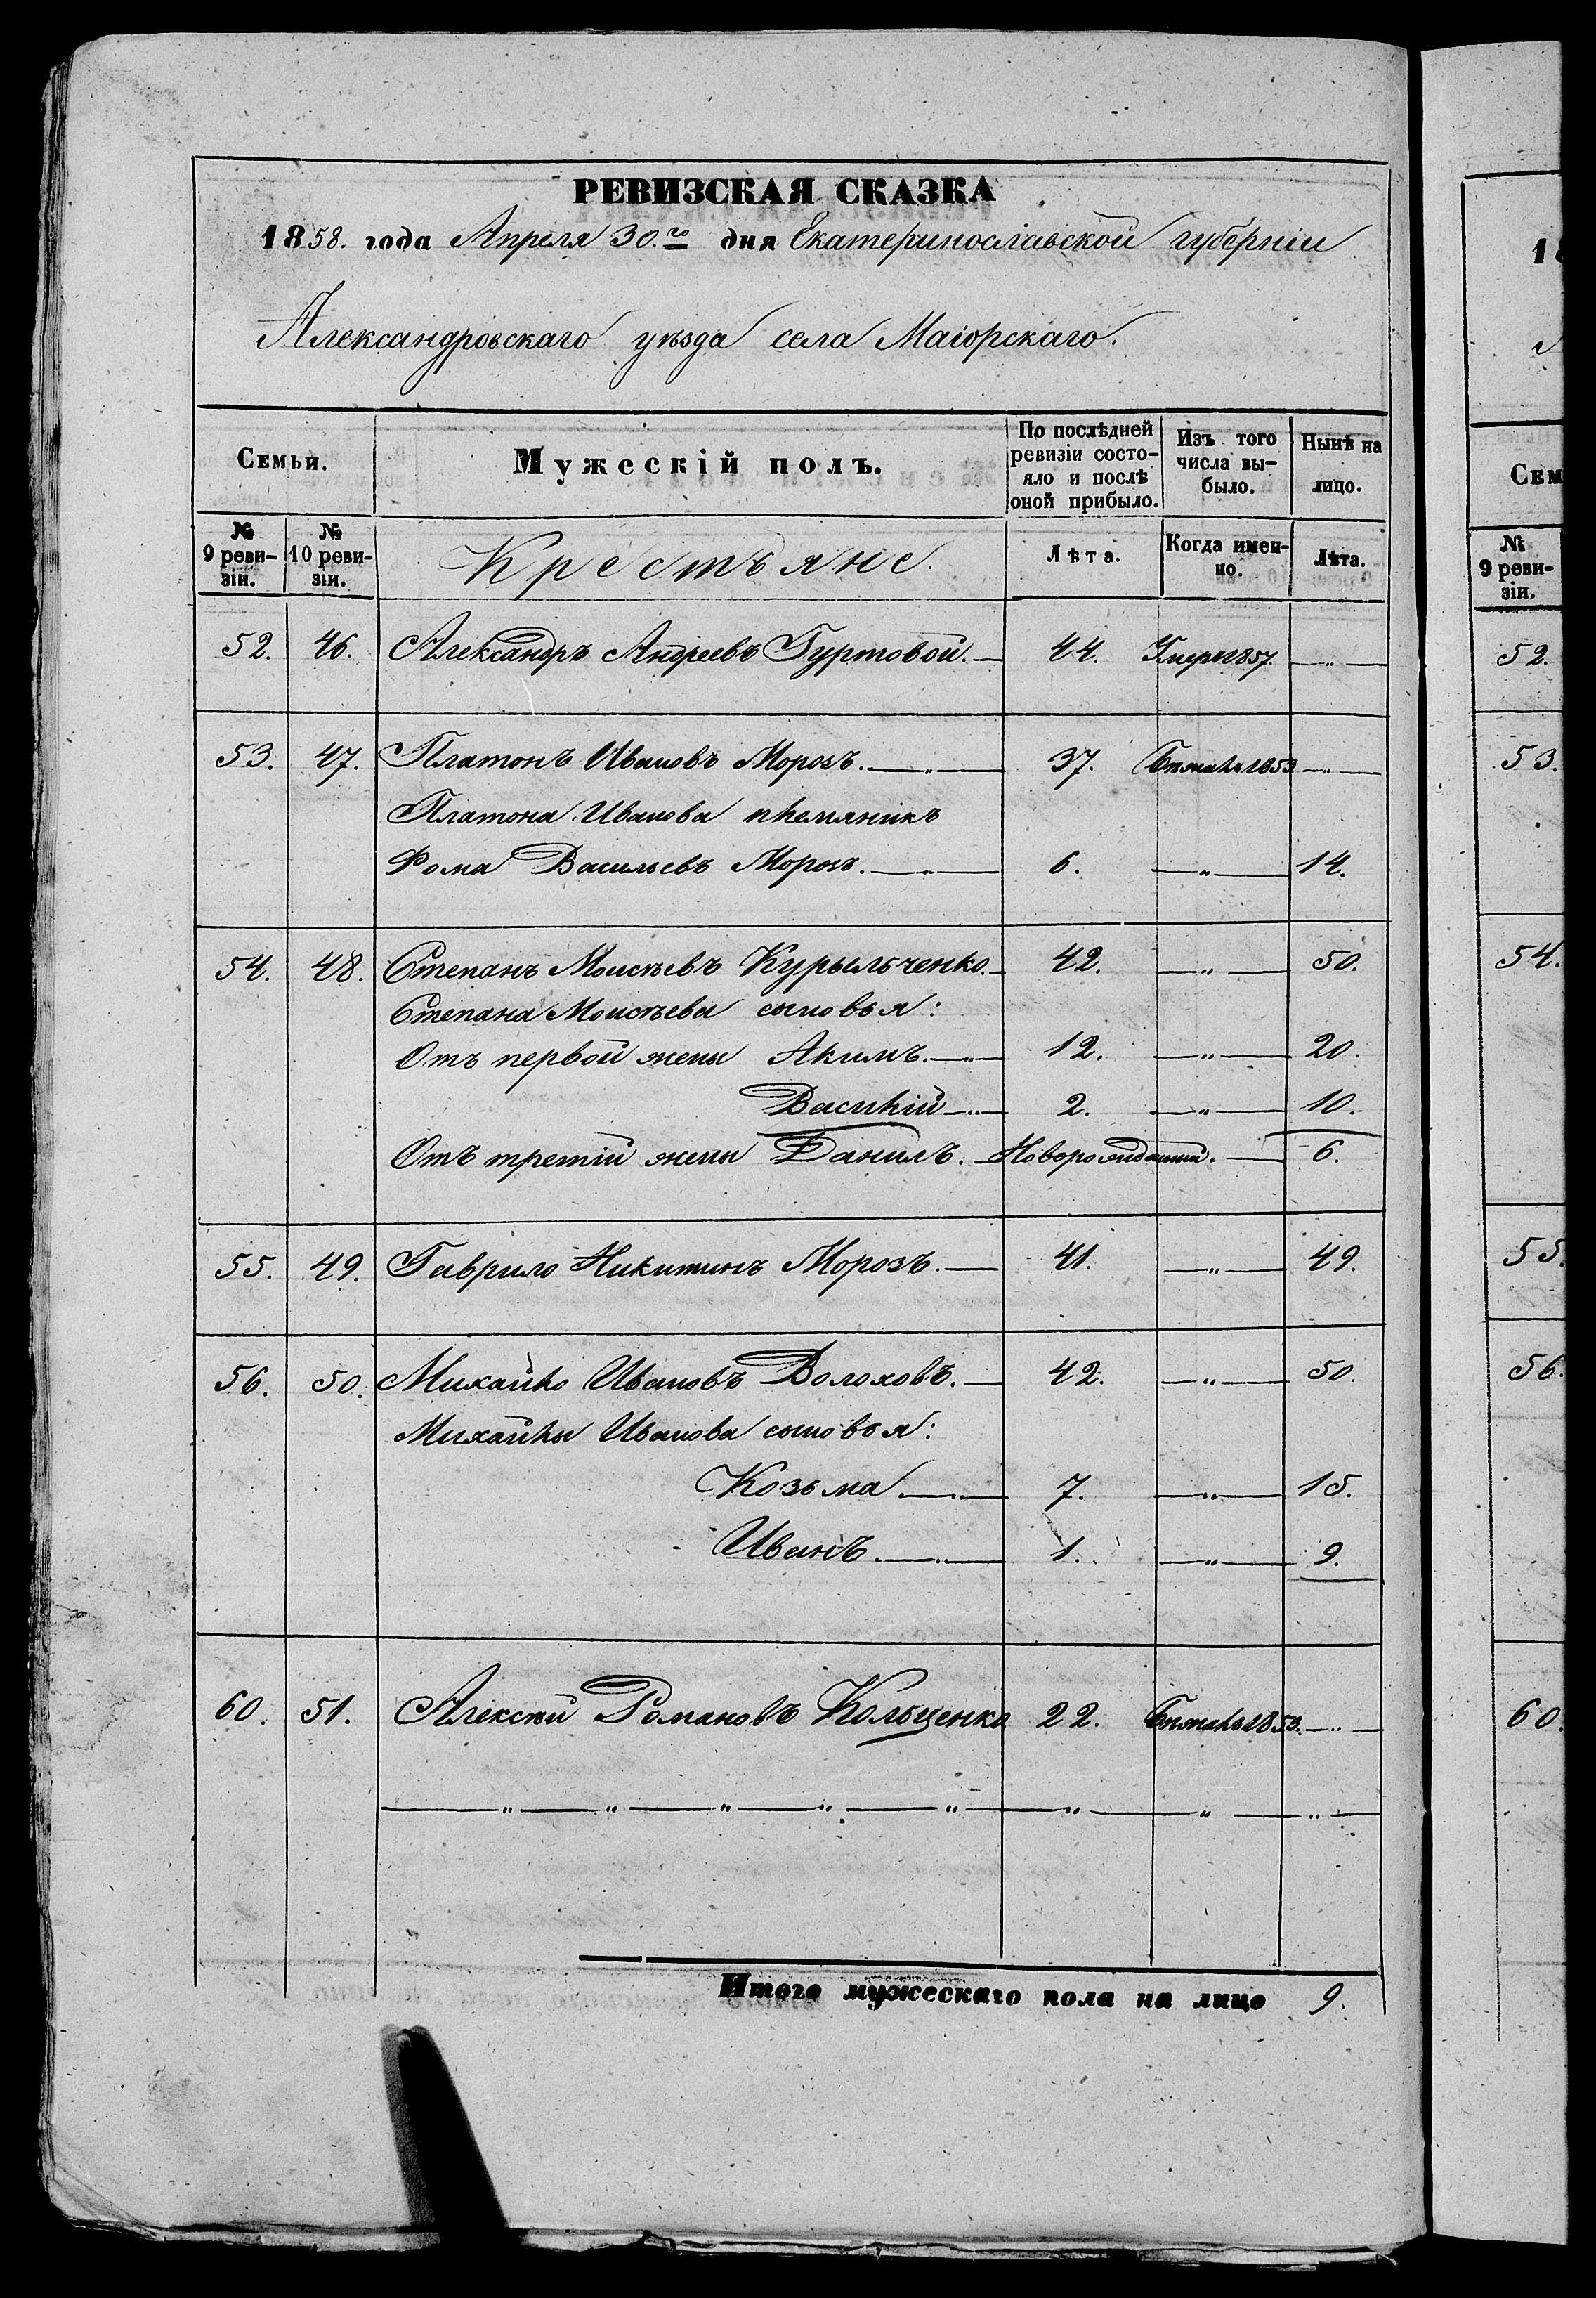 РЕВИЗСКАЯ СКАЗКА
1858. года Апреля 30.го дня Екатеринославской губерніи
Александровскаго уѣзда села Маіорскаго.
Семьи. Мужескій полъ. По послѣдней ревизіи состояло и послѣ оной прибыло. Изъ того числа выбыло. Ныне на лицо.
№ 9 ревизіи. № 10 ревизіи. Крестьяне. Лѣта. Когда именно. Лѣта.
52. 46. Александръ Андреевъ Гуртовой. — 44. Умеръ 1857. — „ —
53. 47. Платонъ Ивановъ Морозъ. — „ — 37. Бѣжалъ 1853 — „ —
Платона Иванова племяникъ
Фома Васильевъ Морозъ. — „ — 6. — „ — 14.
54. 48. Степанъ Моисѣевъ Курыльченко. — 42. — „ — 50.
Степана Моисѣева сыновья:
Отъ первой жены Акимъ. — „ — 12. — „ — 20.
Василій — „ — 2. — „ — 10.
Отъ третій жены Данилъ. — Новорожденный. — 6.
55. 49. Гаврило Никитинъ Морозъ. — 41. — „ — 49.
56. 50. Михайло Ивановъ Волоховъ. — 42. — „ — 50.
Михайлы Иванова сыновья:
Козьма — „ — 7. — „ — 15.
Иванъ. — „ — 1. — „ — 9.
60. 51. Алексѣй Романовъ Кольценко 22. Бѣжалъ 1850. — „ —
— „ — „ — „ — „ — „ — „ — „ — „ —
Итого мужескаго пола на лицо 9.
18
Сем
№ 9 ревизіи.
52.
53.
54.
55.
56.
60.